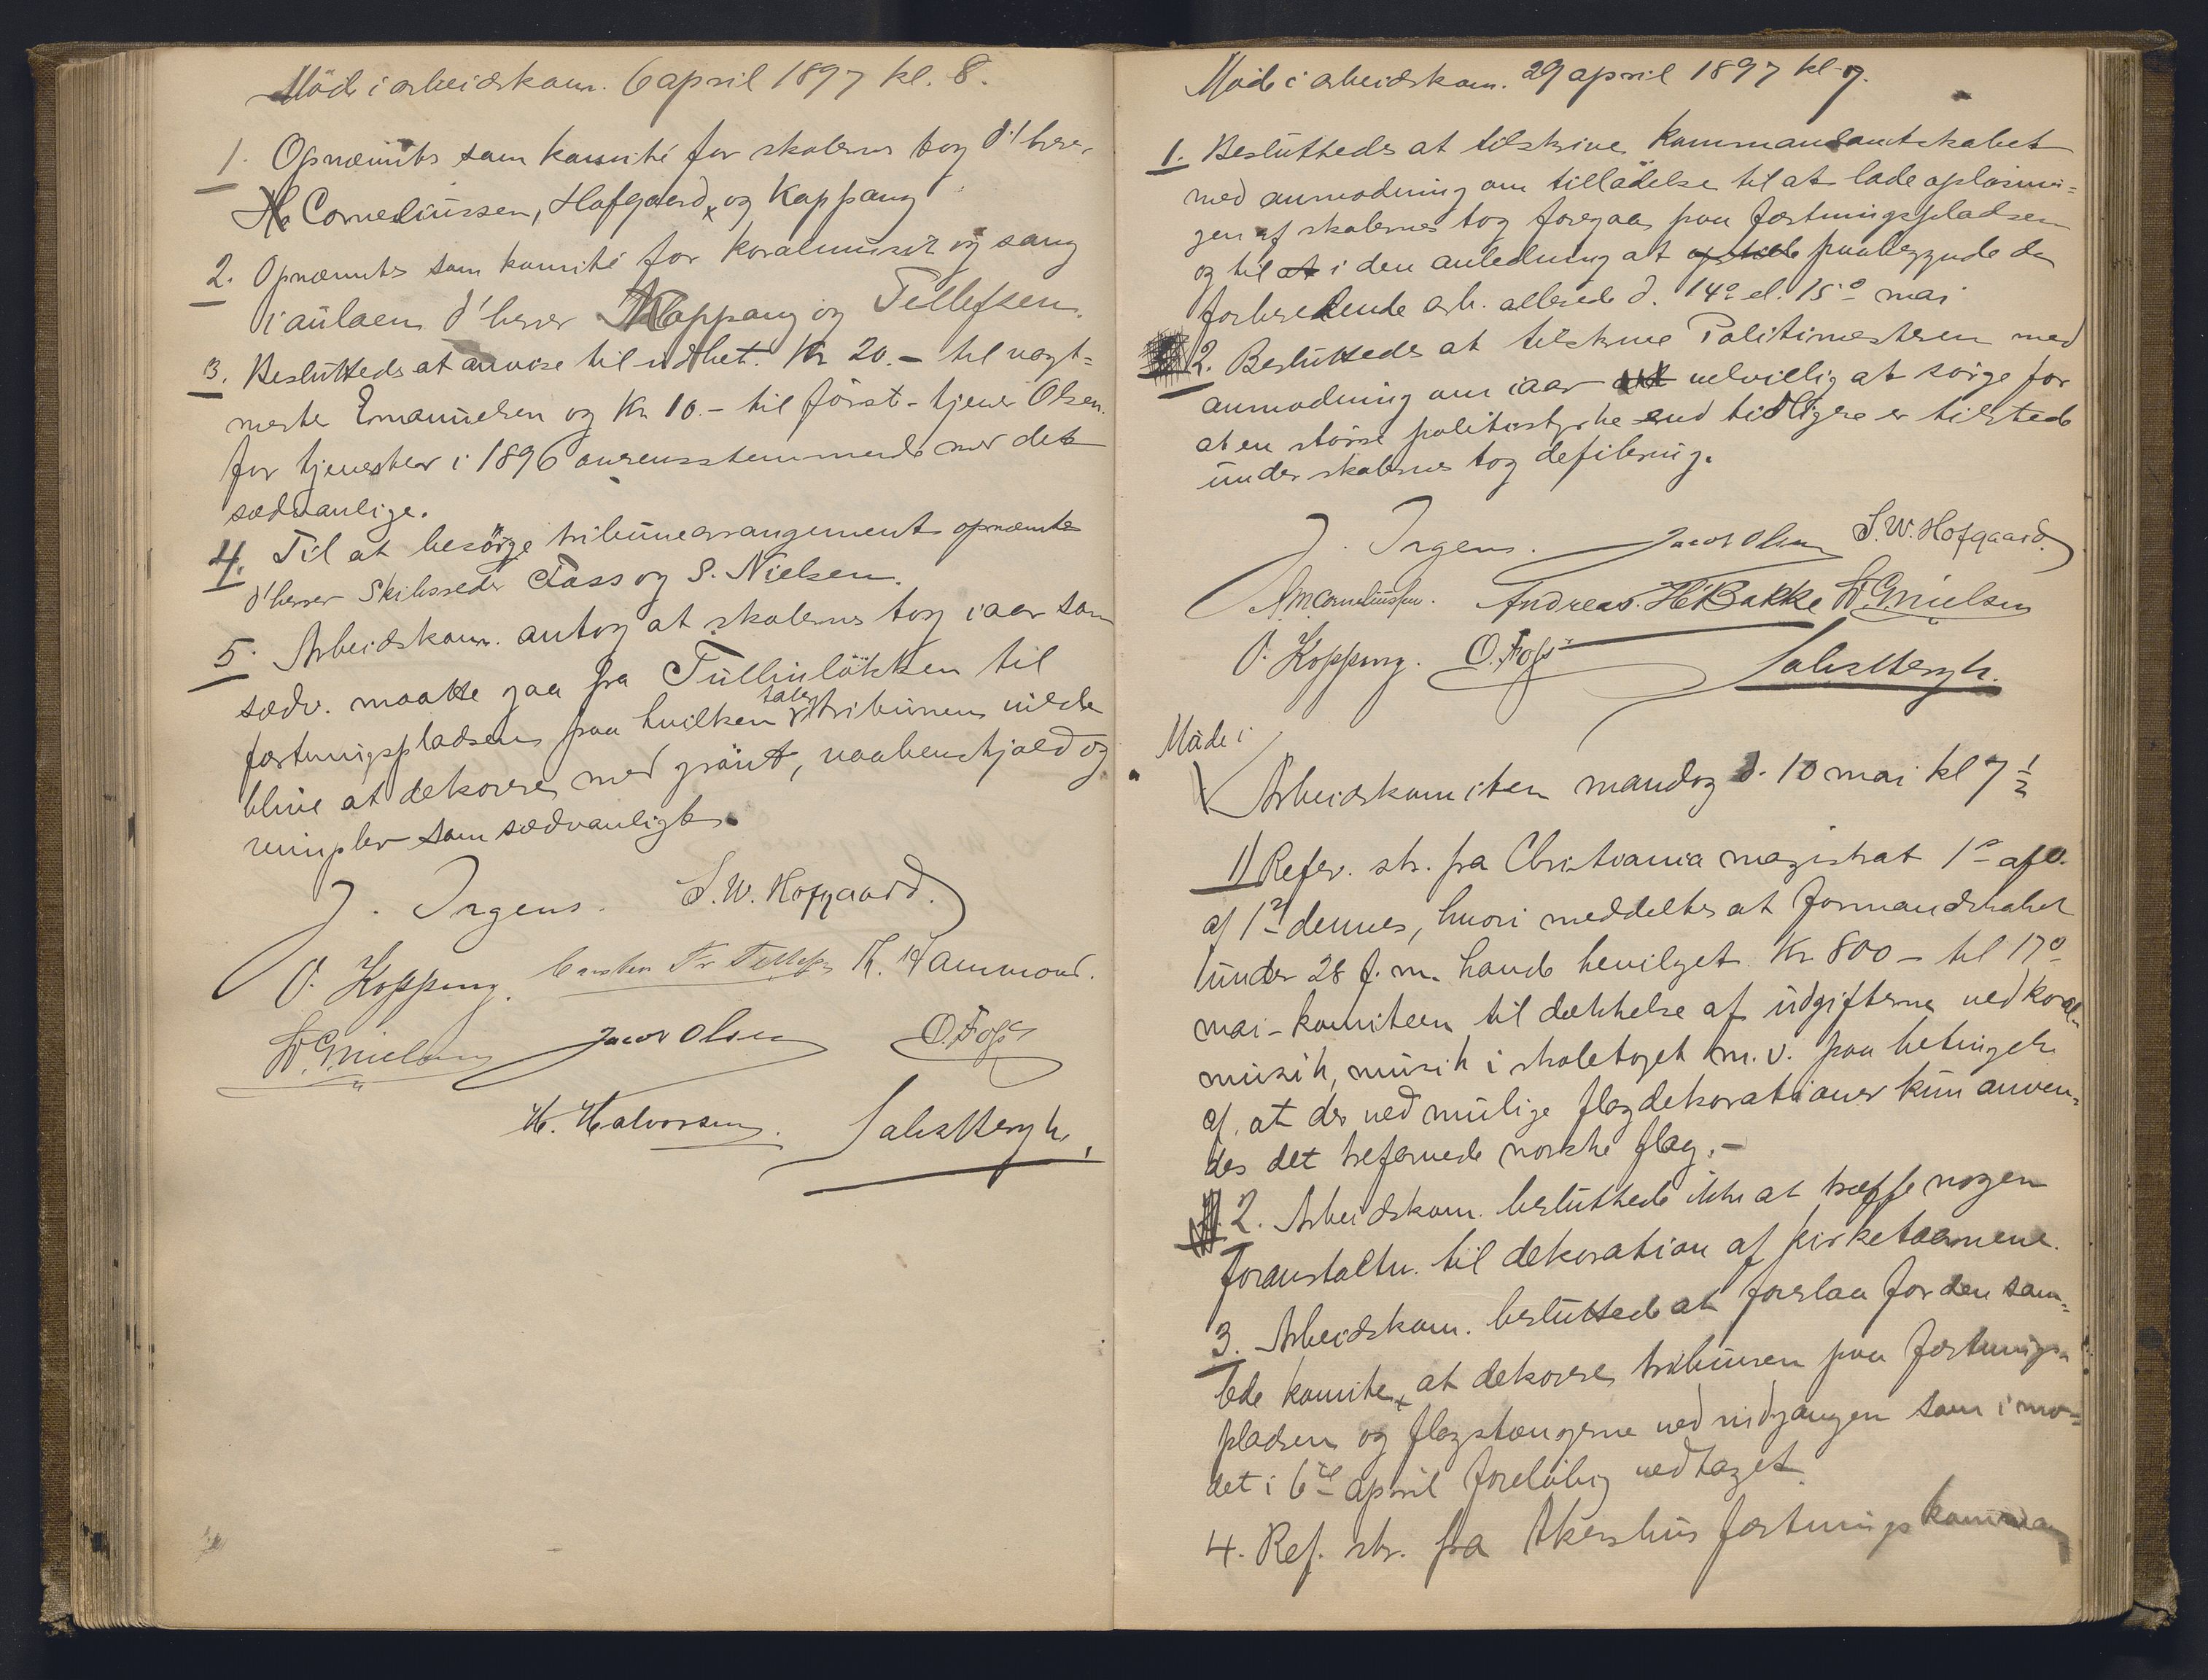 Möde i arbeidskom. 6 april 1897 kl. 8.
1. Opnævntes som komité for skolernes tog d'herrer
Corneliussen, Hofgaard, og Kappang
2. Opnævntes som komité for koralmusik og sang
i aulaen d'herrer Kappang og Tellefsen.
3. Besluttedes at anvise til udbet. Kr 20.- til vagt=
mester Emanuelsen og Kr 10.- til först-tjener Olsen
for tjenester i 1896 overensstemmende med det
sædvanlige.
4. Til at besörge tribunearrangement opnævntes
d'herrer Skibsreder Foss og S. Nielsen.
5. Arbeidskom. antog at skolernes tog iaar som
sædv. maatte gaa fra Tullinlökken til
fæstningspladsen paa hvilken talertribunen vilde
blive at dekorere med grönt, vaabenskjold og
vimpler som sædvanligt.
J. Irgens. S. W. Hofgaard.
O. Kappang. Carsten Fr Tellefs K. Hammond.
W. G. Nielsen Jacob Olsen O. Foss
H. Halvorsen.
Möde i arbeidskom. 29 april 1897 kl. 7.
1. Besluttedes at tilskrive Kommandantskabet
med anmodning om tilladelse til at lade oplösnin=
gen af skolernes tog foregaa paa fæstningspladsen
og til at i den anledning at paabegynde de
forberedende arb. allerede d. 14de el. 15de mai
2. Besluttedes at tilskrive Politimesteren med
anmodning om iaar velvillig at sörge for
at en större politistyrke end tidligere er tilstede
under skolernes tog defilering.
J. Irgens. Jacob Olsen S. W. Hofgaard.
A M Corneliussen. Andreas. H. Bakke W. G. Nielsen
O. Kappang. O. Foss
Möde i
Arbeidskomiteen mandag d. 10 mai kl 7 1/2
1) Refer. skr. fra Christiania magistrat 1ste afd.
af 1ste dennes, hvori meddeltes at formandskabet
under 28 f. m. havde bevilget Kr 800 - til 17de
mai-komiteen til dækkelse af udgifterne ved koral=
musik, musik i skoletoget m. v. paa betingelse
af, at der ved mulige flagdekorationer kun anven=
des det trefarvede norske flag. -
2. Arbeidskom. besluttede ikke at træffe nogen
foranstaltn. til dekoration af kirketaarnene.
3. Arbeidskom. besluttede at foreslaa for den sam=
lede komite, at dekorere tribunen paa fæstnings=
pladsen og flagstængerne ved indgangen som i mö=
det i 6te april forelöbig vedtaget.
4. Ref. skr. fra Akershus fæstnings komman